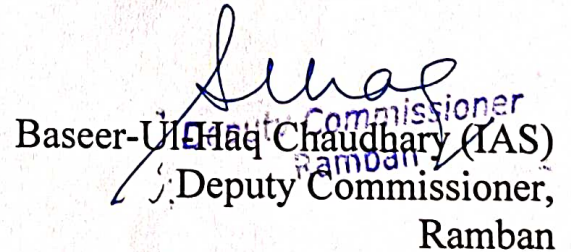 Deputy Commissioner
Ramban
Baseer-Ul-Haq Chaudhary (IAS)
Deputy Commissioner,
Ramban